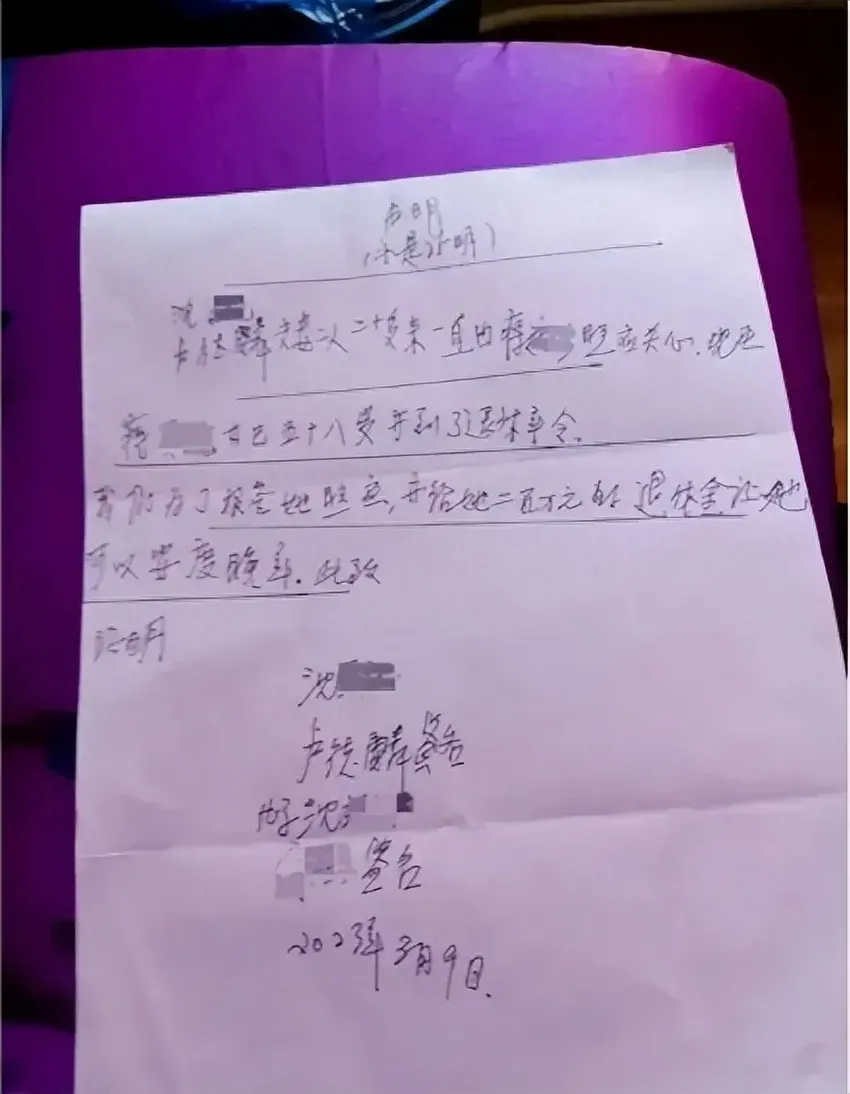 声明
(不是证明)
沈
卢德麟夫妻二人二十多年一直由蒋 照应关心.现在
蒋 女已五十八岁并到了退休年令.
我们为了报答她照应,并给她二百万元的退休金让她
可以安度晚年.此致
证明
沈
卢德麟签名
沈
签名
2023年3月9日.